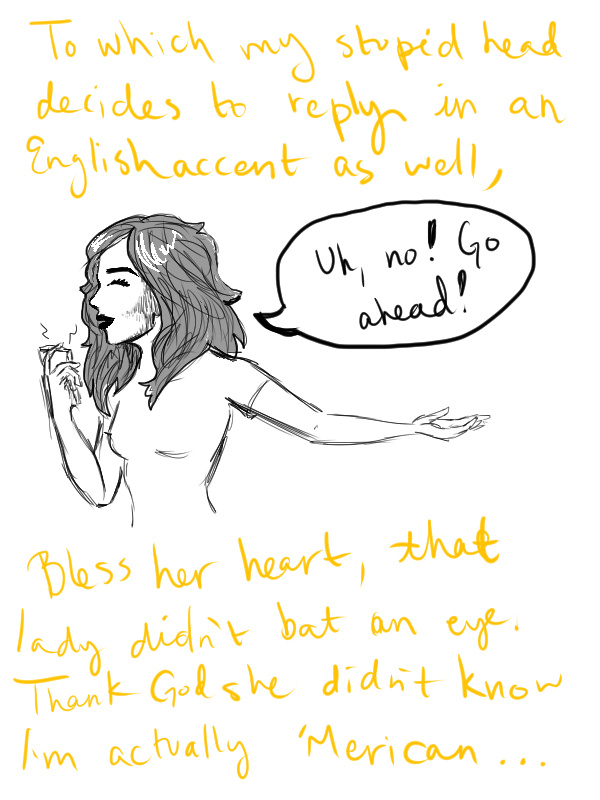 To which my stupid head
decides to reply in an
English accent as well,
Uh, no! Go
ahead!
Bless her heart, that
lady didn't bat an eye.
Thank God she didn't know
I'm actually 'Merican...